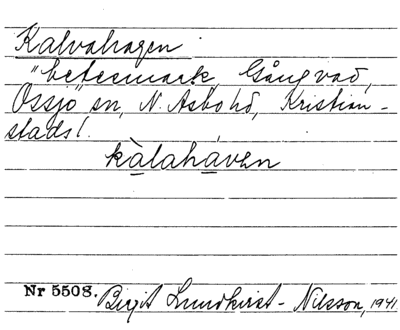 Kalvahagen
"betesmark" Gångvad,
Össjö sn, N. Åsbo hd, Kristian-
stads l.
kàlahàven
Nr 5508. Birgit Lundkvist - Nilsson, 1941